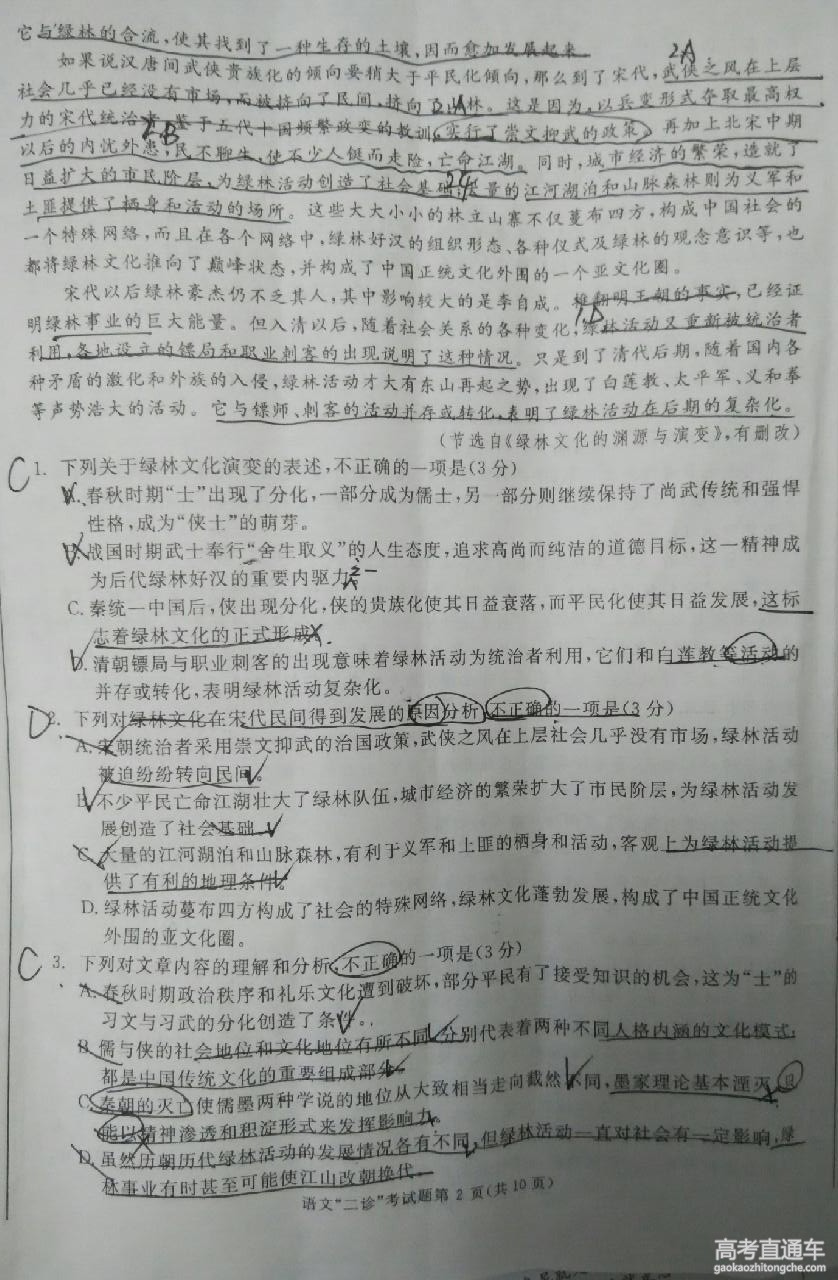 它与绿林的合流,使其找到了一种生存的土壤,因而愈加发展起来
如果说汉唐间武侠贵族化的倾向要稍大于平民化倾向,那么到了宋代,武侠之风在上层
社会几乎已经没有市场,而被挤向了民间、挤向了山林。这是因为,以兵变形式夺取最高权
力的宋代统治者,鉴于五代十国频繁政变的教训,实行了崇文抑武的政策。再加上北宋中期
以后的内忧外患,民不聊生,使不少人铤而走险,亡命江湖。同时,城市经济的繁荣,造就了
日益扩大的市民阶层,为绿林活动创造了社会基础,大量的江河湖泊和山脉森林则为义军和
土匪提供了栖身和活动的场所。这些大大小小的林立山寨不仅蔓布四方,构成中国社会的
一个特殊网络,而且在各个网络中,绿林好汉的组织形态、各种仪式及绿林的观念意识等,也
都将绿林文化推向了巅峰状态,并构成了中国正统文化外围的一个亚文化圈。
宋代以后绿林豪杰仍不乏其人,其中影响较大的是李自成。推翻明王朝的事实,已经证
明绿林事业的巨大能量。但入清以后,随着社会关系的各种变化,绿林活动又重新被统治者
利用,各地设立的镖局和职业刺客的出现说明了这种情况。只是到了清代后期,随着国内各
种矛盾的激化和外族的入侵,绿林活动才大有东山再起之势,出现了白莲教、太平军、义和拳
等声势浩大的活动。它与镖师、刺客的活动并存或转化,表明了绿林活动在后期的复杂化。
(节选自《绿林文化的渊源与演变》,有删改)
C 1. 下列关于绿林文化演变的表述,不正确的一项是(3分)
A. 春秋时期“士”出现了分化,一部分成为儒士,另一部分则继续保持了尚武传统和强悍
性格,成为“侠士”的萌芽。
B. 战国时期武士奉行“舍生取义”的人生态度,追求高尚而纯洁的道德目标,这一精神成
为后代绿林好汉的重要内驱力。
C. 秦统一中国后,侠出现分化,侠的贵族化使其日益衰落,而平民化使其日益发展,这标
志着绿林文化的正式形成。
D. 清朝镖局与职业刺客的出现意味着绿林活动为统治者利用,它们和白莲教等活动的
并存或转化,表明绿林活动复杂化。
D 2. 下列对绿林文化在宋代民间得到发展的原因分析,不正确的一项是(3分)
A. 宋朝统治者采用崇文抑武的治国政策,武侠之风在上层社会几乎没有市场,绿林活动
被迫纷纷转向民间。
B. 不少平民亡命江湖壮大了绿林队伍,城市经济的繁荣扩大了市民阶层,为绿林活动发
展创造了社会基础。
C. 大量的江河湖泊和山脉森林,有利于义军和土匪的栖身和活动,客观上为绿林活动提
供了有利的地理条件。
D. 绿林活动蔓布四方构成了社会的特殊网络,绿林文化蓬勃发展,构成了中国正统文化
外围的亚文化圈。
C 3. 下列对文章内容的理解和分析,不正确的一项是(3分)
A. 春秋时期政治秩序和礼乐文化遭到破坏,部分平民有了接受知识的机会,这为“士”的
习文与习武的分化创造了条件。
B. 儒与侠的社会地位和文化地位有所不同,分别代表着两种不同人格内涵的文化模式,
都是中国传统文化的重要组成部分。
C. 秦朝的灭亡使儒墨两种学说的地位从大致相当走向截然不同,墨家理论基本湮灭,只
能以精神渗透和积淀形式来发挥影响力。
D. 虽然历朝历代绿林活动的发展情况各有不同,但绿林活动一直对社会有一定影响,绿
林事业有时甚至可能使江山改朝换代。
语文“二诊”考试题第 2 页(共 10 页)
高考直通车
gaokaozhitongche.com